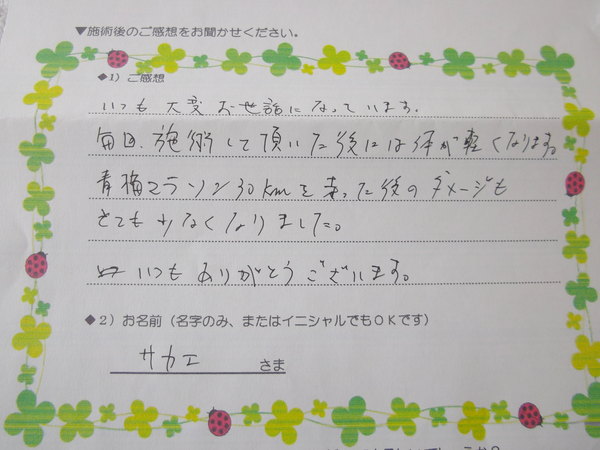 ▼施術後のご感想をお聞かせください。
◆1）ご感想
いつも大変お世話になっています。
毎回、施術して頂いた後には体が軽くなります。
青梅マラソン30kmを走った後のダメージも
とても少なくなりました。
いつもありがとうございます。
◆2）お名前（名字のみ、またはイニシャルでもOKです）
サカエ さま